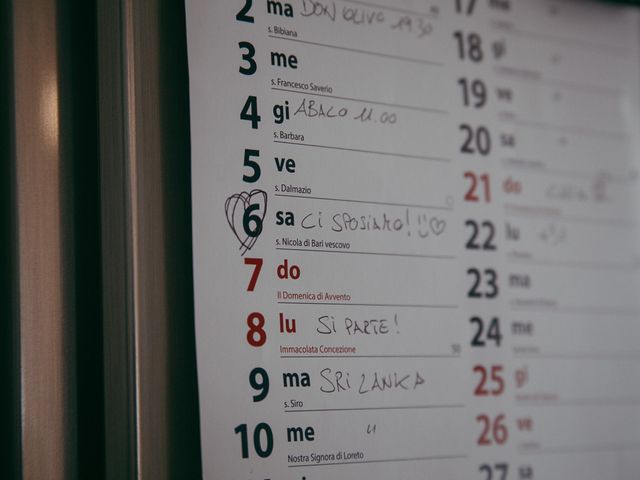 2 ma DON OLIVO 19.30
s. Bibiana
3 me
s. Francesco Saverio
4 gi ABACO 11.00
s. Barbara
5 ve
s. Dalmazio
6 sa CI SPOSIAMO!
s. Nicola di Bari vescovo
7 do
II Domenica di Avvento
8 lu SI PARTE!
Immacolata Concezione 50
9 ma SRI LANKA
s. Siro
10 me "
Nostra Signora di Loreto
17 ma
18 gi
19 ve
20 sa
21 do
22 lu
23 ma
24 me
25 gi
26 ve
27 sa